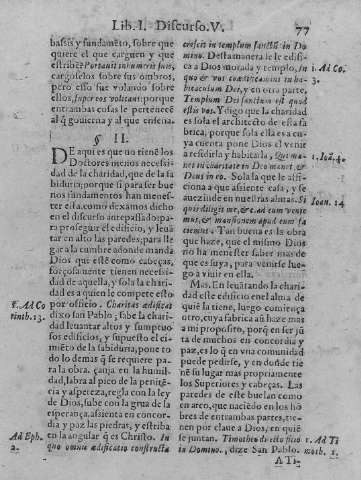 Lib. I. Discurso. V.
77
bassis y fundamẽto, sobre que
quiere el que carguen y que
estriben Portauit humeris suis,
cargoselos sobre sus ombros,
pero esso fue volando sobre
ellos, super eos volitans: porque
entrambas cosas le pertenecẽ
al q̃ gouierna y al que ensena.
§ II.
DE aqui es que no tienẽ los
Doctores menos necessi-
dad de la charidad, que de la sa
biduria; porque si para ser bue
nos fundamentos han menes-
ter esta como dexamos dicho
en el discurso antepassado: pa-
ra proseguir el edificio, y leuã
tar en alto las paredes; para lle
gar a la cumbre adonde manda
Dios que estẽ como cabeças,
forçosamente tienen necessi-
dad de aquella, y sola la charid
dad es a quien le compete esto
por officio. Charitas ædificat
dixo san Pablo; sabe la charid
dad leuantar altos y sumptuo
sos edificios, y supuesto el ci-
miẽto de la sabiduria, pone to
do lo demas q̃ se requiere pa-
ra la obra, çanja en la humil-
dad, labra al pico de la penitẽ-
cia y aspereza, regla con la ley
de Dios, sube con la grua de la
esperança, assienta en concor-
dia y paz las piedras, y estriba
en la angular q̃ es Christo. In
quo omnis ædificatio constructa
1. Ad Co
rinth. 13.
Ad Eph.
2.
crescit in templum sanctũ in Do
mino. Desta manera le le edifi-
ca a Dios morada y templo, In
quo & vos coædificamini in ha-
bitaculum Dei, y en otra parte,
Templum Dei sanctum est quod
estis vos. Y digo que la charidad
es sola el architecto de esta fa
brica, porque sola ella es a cu-
ya cuenta pone Dios el venir
a residirla y habitarla, Qui ma-
net in charitate in Deo manet &
Deus in eo. Sola la que le affi-
ciona a que assiente casa, y se
auezinde en nuestras almas. Si
quis diligit me, &c. ad eum venie
mus, & mansionem apud eum fa
ciemus. Tan buena es la obra
que haze, que el mismo Dios
no ha menester saber mas de
que es suya, para venirse luego
a viuir en ella.
Mas, En leuãtando la charid
dad este edificio en el alma de
quien la tiene, luego comiença
otro, cuya fabrica aũ haze mas
a mi proposito, porq̃ en ser jũ
ta de muchos en concordia y
paz, es lo q̃ en vna comunidad
puede pedirse, y en donde tie
nẽ su lugar mas propriamente
los Superiores y cabeças. Las
paredes de este buelan como
en arco, que naciedo en los hõ
bros de entrambas partes, tie-
nen por claue a Dios, en quiẽ
se juntan. Timothie
in Domino, dize San Pablo.
A Ti-
1. Ad Co.
3.
1. Ioã. 4.
Ioan. 14
1. Ad Ti
moth. 1.